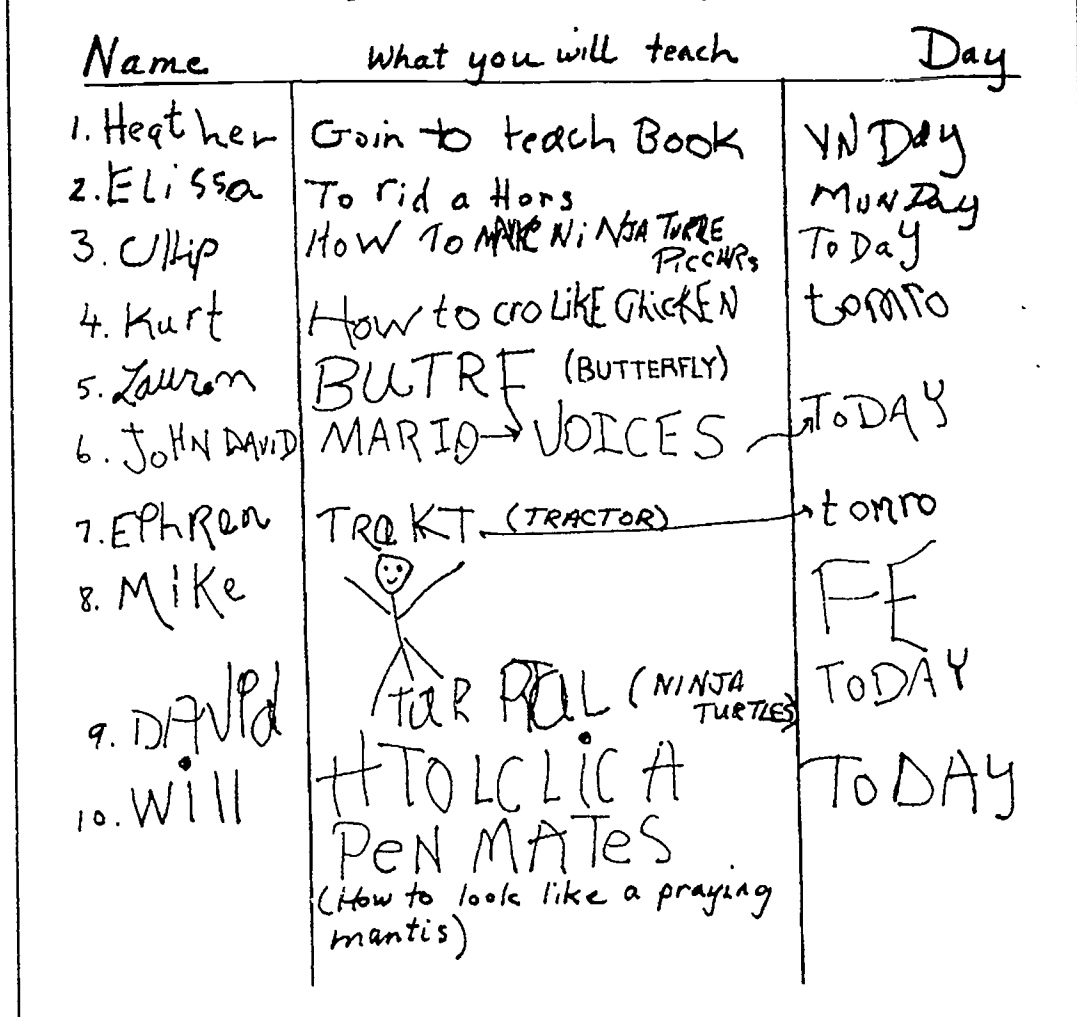 Name What you will teach Day
1. Heather Goin to teach Book YN DAy
2. ELissa To rid a Hors MUNDay
3. How To MAKE NiNJA TURRE ToDaY
PICCHRs
4. Kurt How to cro LiKE ChicKEN tomro
5. Lauren BUTRF (BUTTERFLY)
6. JOHN DAVID MARIO→VOICES ToDAY
7. EPhRen TRaKT (TRACTOR) tomro
8. MiKe FE
9. DAViD taR (NINJA ToDAY
TURTLES)
10. Will HTOLCLiC A ToDAY
PeN MATeS
(How to look like a praying
mantis)